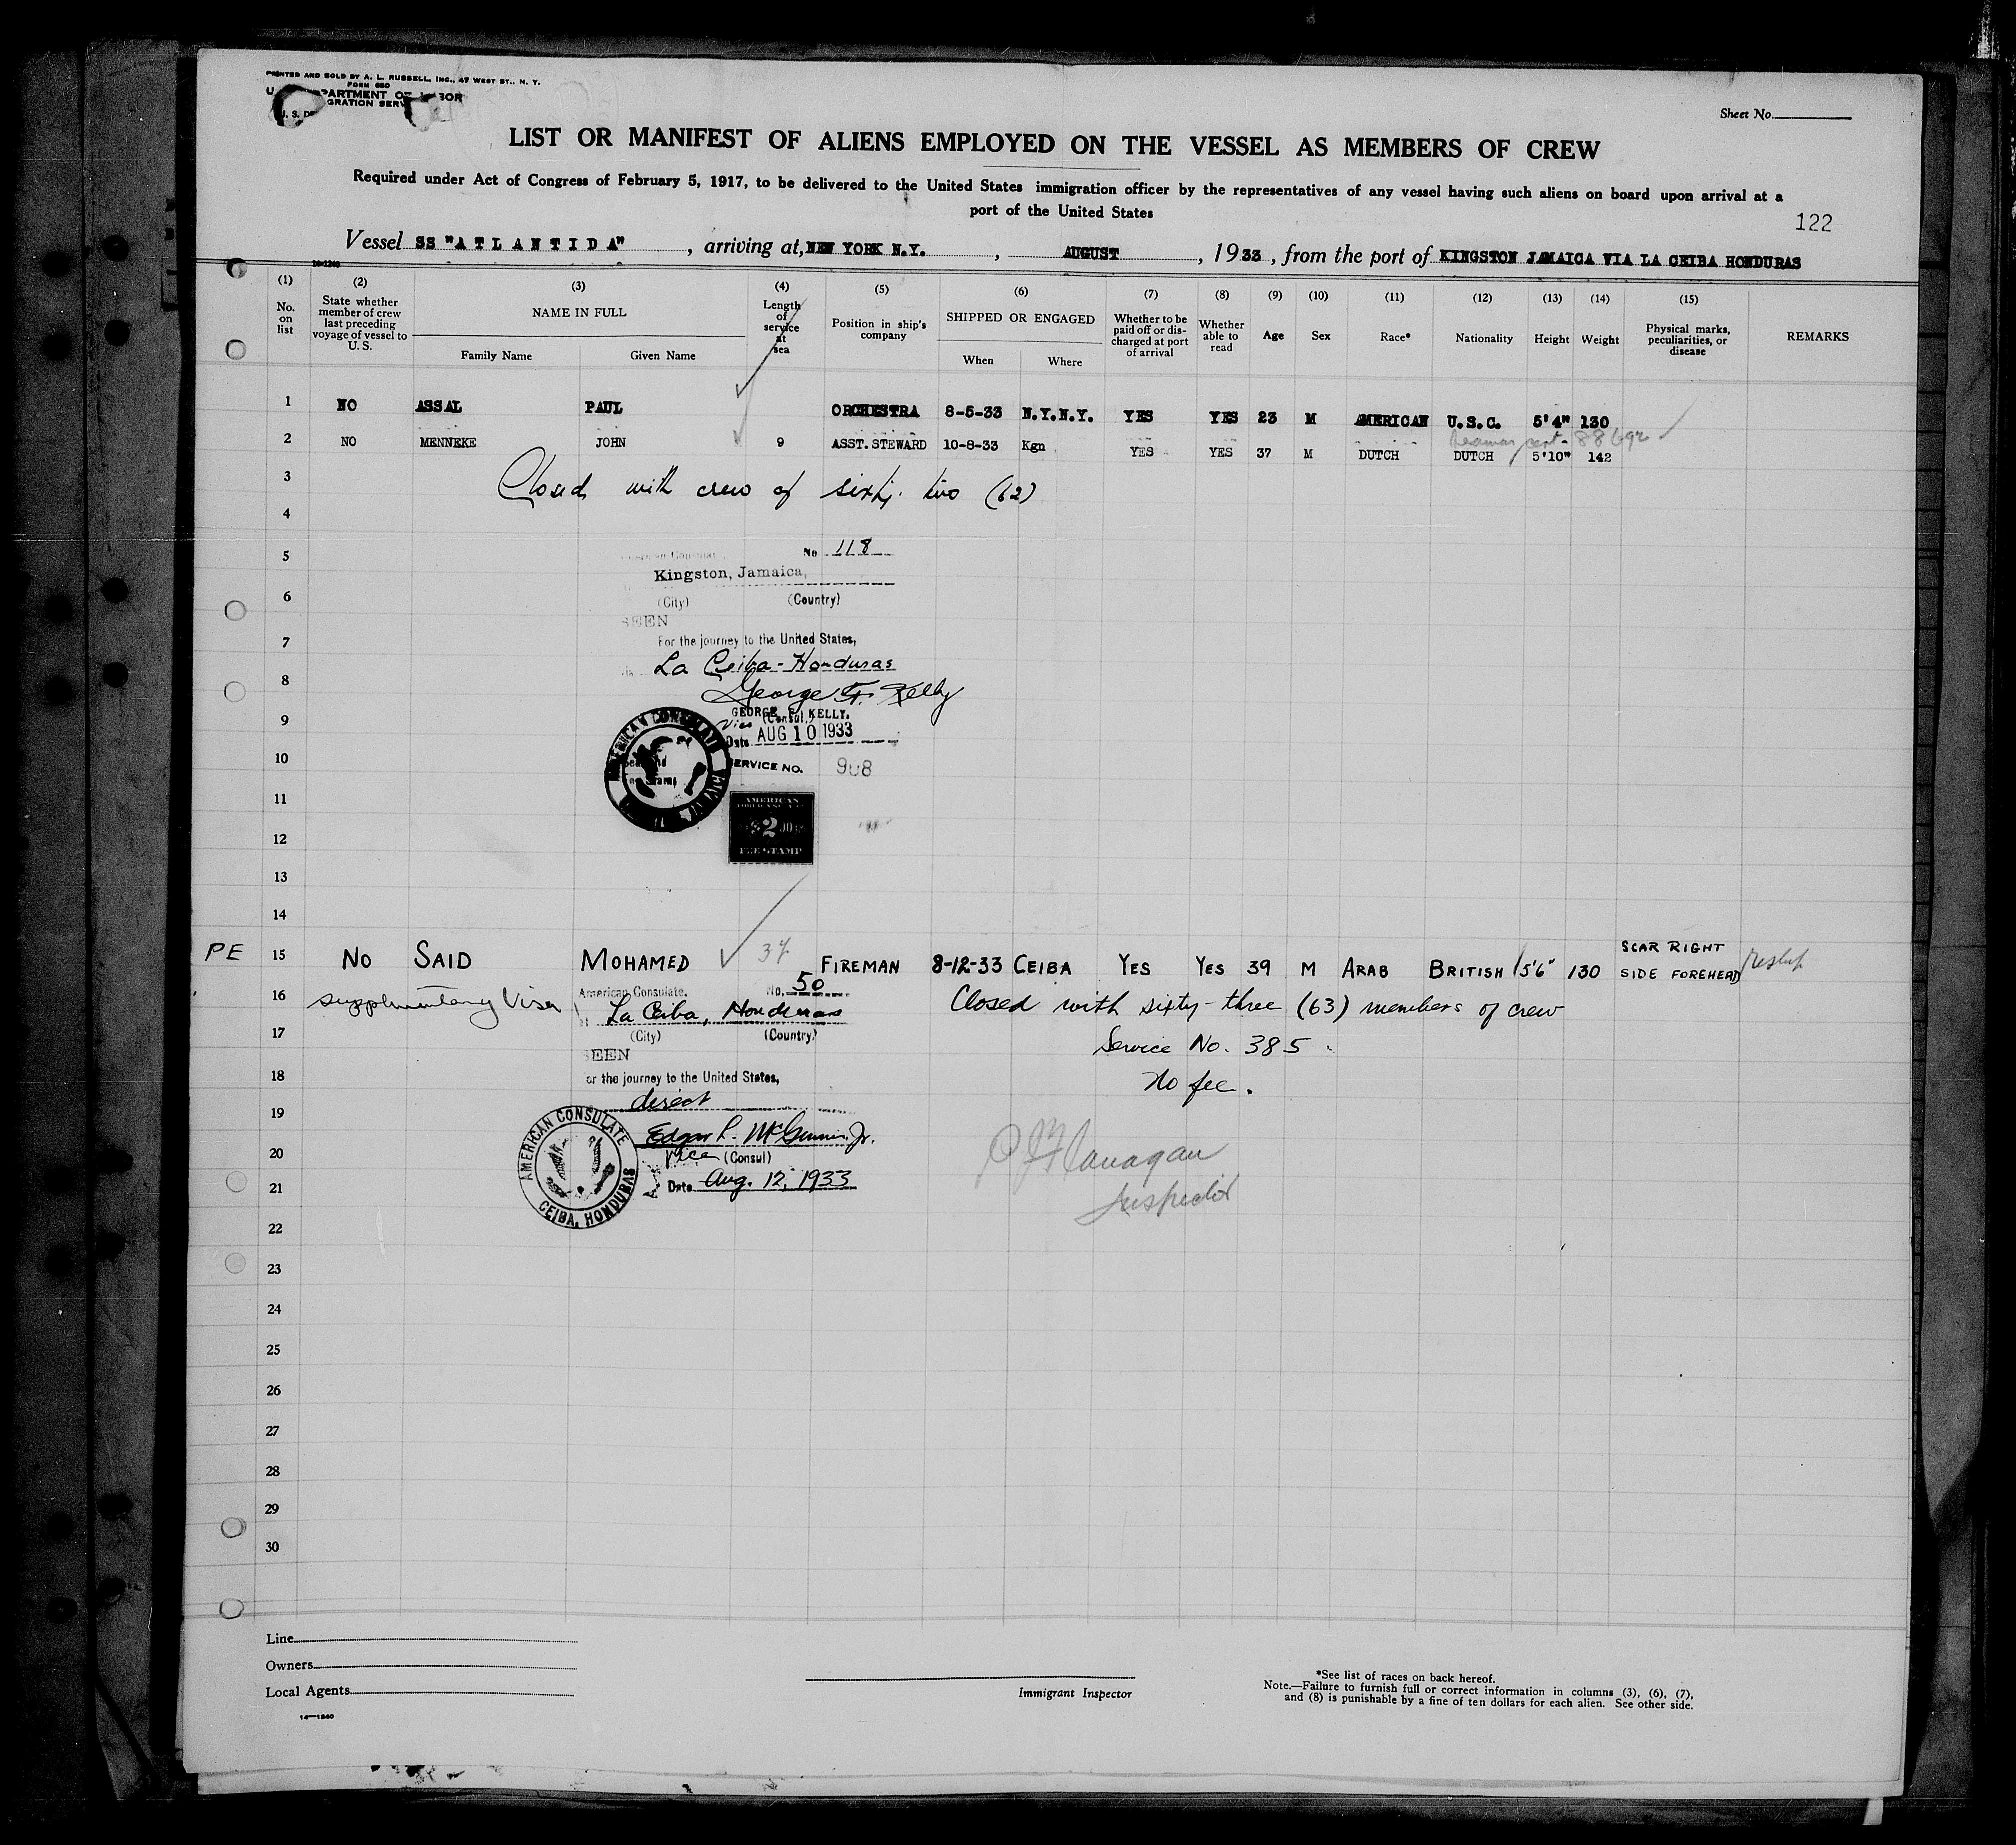 PRINTED AND SOLD BY A. L. RUSSELL, INC., 47 WEST ST., N. Y.
FORM 680
LABOR
U. S.
Sheet No.
LIST OR MANIFEST OF ALIENS EMPLOYED ON THE VESSEL AS MEMBERS OF CREW
Required under Act of Congress of February 5, 1917, to be delivered to the United States immigration officer by the representatives of any vessel having such aliens on board upon arrival at a
port of the United States
122
Vessel SS "ATLANTIDA", arriving at, NEW YORK N.Y., AUGUST, 1933, from the port of KINGSTON JAMAICA VIA LA CEIBA HONDURAS
(1) (2) (3) (4) (5) (6) (7) (8) (9) (10) (11) (12) (13) (14) (15)
No. on list
State whether member of crew last preceding voyage of vessel to U. S.
NAME IN FULL
Family Name Given Name
Length of service at sea
Position in ship's company
SHIPPED OR ENGAGED
When Where
Whether to be paid off or discharged at port of arrival
Whether able to read
Age Sex Race* Nationality Height Weight
Physical marks, peculiarities, or disease
REMARKS
1 NO ASSAL PAUL ORCHESTRA 8-5-33 N.Y.N.Y. YES YES 23 M AMERICAN U.S.C. 5'4" 130
2 NO MENNEKE JOHN 9 ASST. STEWARD 10-8-33 Kgn YES YES 37 M DUTCH DUTCH 5'10" 142
3 Closed with crew of sixty two (62)
4
5 No 118
Kingston, Jamaica,
6 (City) (Country)
SEEN
7 For the journey to the United States,
La Ceiba - Honduras
8 George F. Kelly
9 GEORGE F. KELLY.
Vice (Consul.)
Date AUG 10 1933
AMERICAN CONSULATE
10 SERVICE NO. 908
11 AMERICAN
12 $2.00
FEE STAMP
13
14
PE 15 NO SAID MOHAMED FIREMAN 8-12-33 CEIBA YES YES 39 M ARAB BRITISH 5'6" 130 SCAR RIGHT SIDE FOREHEAD
16 supplementary Visa American Consulate. No. 50 Closed with sixty-three (63) members of crew
La Ceiba, Honduras
17 (City) (Country) Service No. 385
SEEN
18 or the journey to the United States, No fee.
direct
19 AMERICAN CONSULATE
CEIBA, HONDURAS
Edgar L. McGinnis, Jr.
20 Vice (Consul) Flanagan
21 Date Aug. 12, 1933 Inspector
22
23
24
25
26
27
28
29
30
Line
Owners
Local Agents
14—1240
Immigrant Inspector
*See list of races on back hereof.
Note.—Failure to furnish full or correct information in columns (3), (6), (7),
and (8) is punishable by a fine of ten dollars for each alien. See other side.